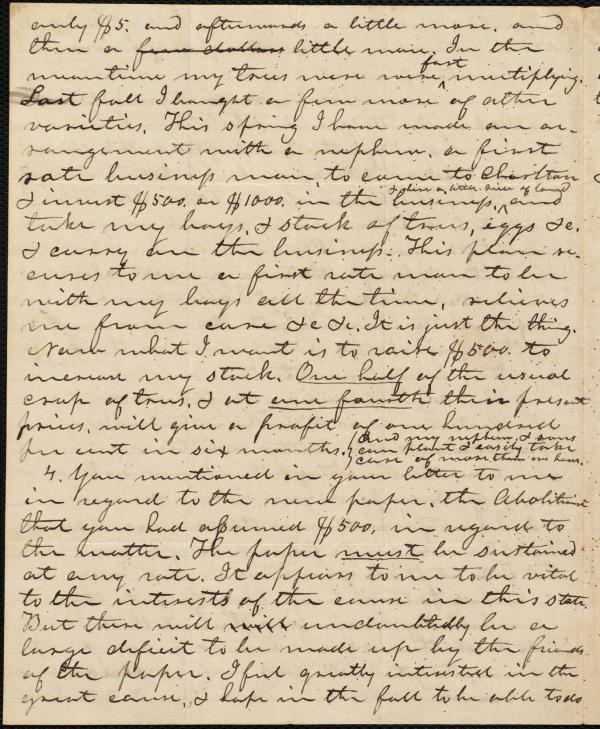 only $5. and afterwards a little more. and
then a few dollars little more. In the
meantime my trees were were fast multiplying.
Last fall I bought a few more of other
varieties. This spring I have made an ar-
rangement with a nephew. a first
rate business man, to come to Charlton
& invest $500. or $1000. in the business, & hire a little piece of land and
take my boys, & stock of trees, eggs &c.
& carry on the business. This plan se-
cures to me a first rate man to be
with my boys all the time, relieves
me from care &c &c. It is just the thing.
Now what I want is to raise $500. to
increase my stock. One half of the usual
crop of trees, & at one fourth their present
prices, will give a profit of one hundred
per cent in six months. (And my nephew & sons
can plant & easily take
care of more than we have.
4. You mentioned in your letter to me
in regard to the new paper, the Abolitionist
that you had assumed $500. in regard to
the matter. The paper must be sustained
at any rate. It appears to me to be vital
to the interests of the cause in this state.
But there will will undoubtedly be a
large deficit to be made up by the friends
of the paper. I feel greatly interested in the
great cause, & hope in the fall to be able to do